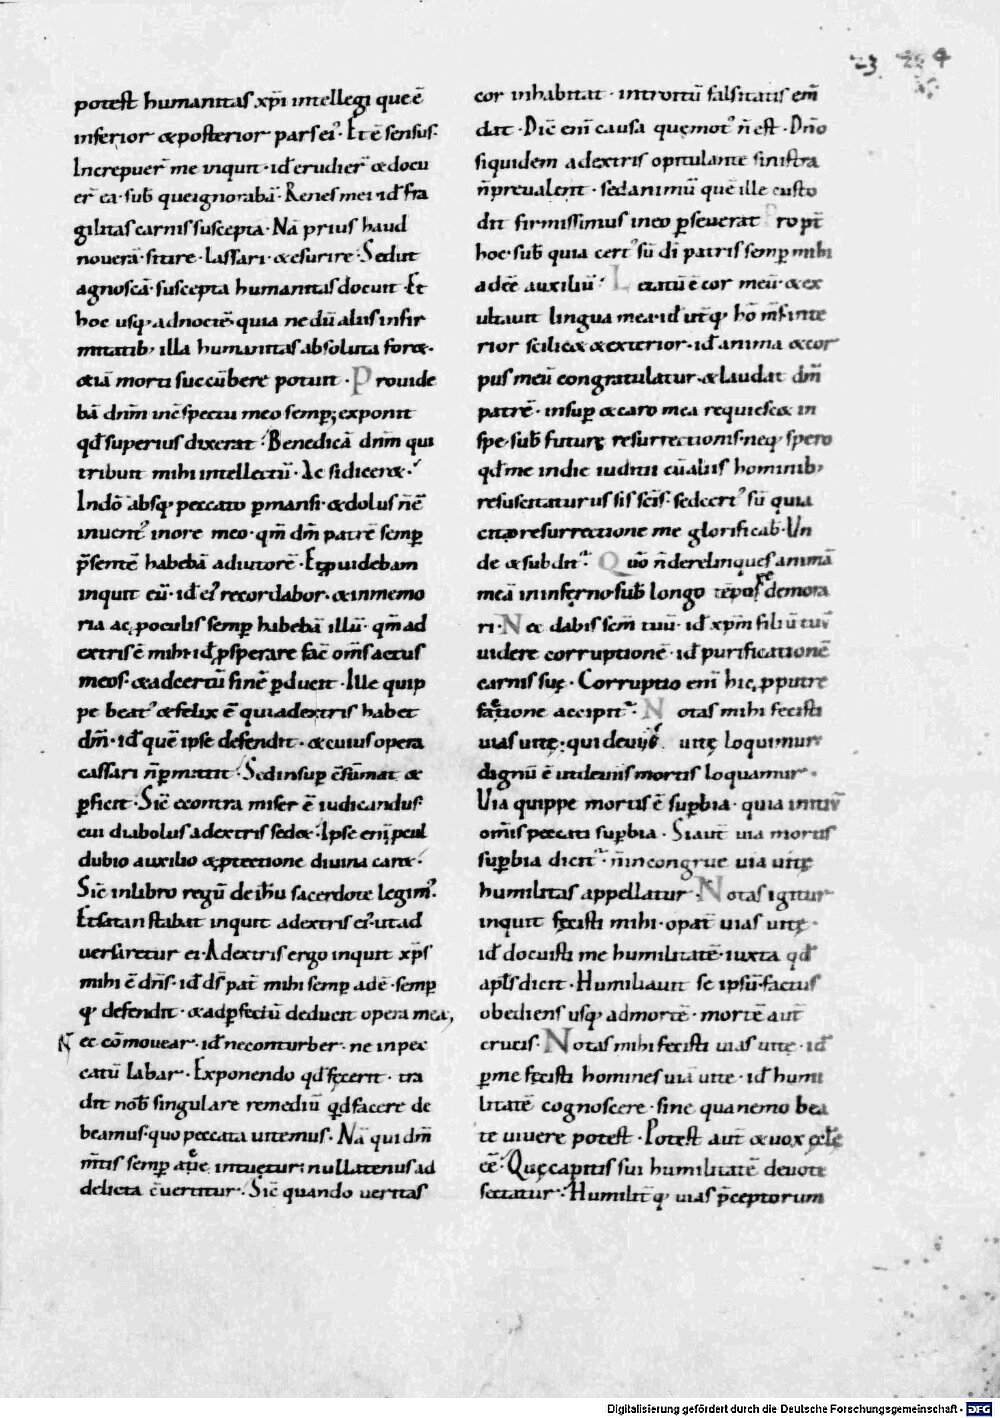 23 224
potest humanitas xp̄i intellegi que ē
inferior &posterior pars ei᾿. Et ē sensus·
Increpuer̄ me inquit· id̄ erudier̄ & docu
er̄ ea·sub̄ que ignorabā·Renes mei·id̄ fra
gilitas carnis suscepta·Nā prius haud
noverā·sitire·lassari·&esurire·Sed ut
agnoscā·suscepta humanitas docuit·Et
hoc usq, ad noctē·quia ne dū aliis infir
mitatib, illa humanitas absoluta for&·
&iā morti succūbere potuit·Provide
bā dnm̄ in c̄spectu meo semp̱; exponit
qd̄ superius dixerat·Benedicā dnm̄ qui
tribuit mihi intellectū·Ac si dicer&·
In do absq, peccato p̱mansi·&dolus n̄ ē
invent᾿ in ore meo·qm̄ dm̄ patrē semp̱
p̄sentē habebā adiutorē·Et p̱videbam
inquit eū·id̄ ei᾿ recordabor·&in memo
ria ac poculis semp̱ habebā illū·qm̄ ad
extris ē mihi·id̄ p̱sperare fac̄ om̄s actus
meos·&ad certū finē p̱ducit·Ille quip
pe beat᾿ &felix ē qui adextris habet
dm̄·id̄ quē ipse defendit·&cuius opera
cassari n̄ p̱mittit·Sed insup̱ c̄sūmat &
p̱ficit·Sic̄ econtra miser ē iudicandus·
cui diabolus adextris sed&·Ipse eni p̱cul
dubio auxilio &p̱tectione divina car&·
Sic̄ in libro regū de ih̄u sacerdote legim᾿.
Et satan stabat inquit adextris ei᾿·ut ad
versiretur ei·Adextris ergo inquit xp̄s
mihi ē dn̄s·id̄ ds̄ pat̄ mihi semp̱ adē·semp̱
q, defendit·&ad p̱fectū deducit opera mea,
Nec cōmovear·id̄ ne conturber·ne in pec
catū labar·Exponendo qd̄ fęcerit·tra
dit nob̄ singulare remediū qd̄ facere de
beamus·quo peccata vitemus·Nā qui dm̄
m̄tis semp̱ acie intuetur: nullatenus ad
delicta c̄vertitur·Sic̄ quando veritas
cor inhabitat·introitū falsitatis em̄
dat·Dic̄ eni causa quę mot᾿ n̄ est·Dn̄o
siquidem adextris opitulante sinistra
n̄ prevalent·sed animū quē ille custo
dit firmissimus in eo p̱severat Propt̄
hoc·sub̄ quia cert᾿ sū di patris semp̱ mihi
adee auxiliū·Letatū ē cor meū·&ex
ultavit lingua mea·id̄ ut̄q, ho m̄s inte
rior scilic& &exterior·id̄ anima &cor
pus meū congratulatur·&laudat dm̄
patrē·insup̱ &caro mea requiesc& in
spe·sub̄ futurę resurrectionis·neq, spero
qd̄ me in die iudicii cū aliis hominib,
resuscitaturus sis seis·sed cert᾿ sū quia
cito resurrectione me glorificab̄·Un
de &subdit·Quō n̄ derelinques animā
meā in inferno·sub̄ longo tēpore demora
ri·Nec dabis sc̄m tuū·id̄ xp̄m filiū tuū
videre corruptionē·id̄ purificationē
carnis suę·Corruptio eni hic p̱ putre
factione accipit᾿·Notas mihi fecisti
vias vitę: qui de viis vitę loquimur
dignū ē ut de viis mortis loquamur·
Via quippe mortis ē sup̱bia·quia initiū
om̄is peccati sup̱bia·Si aut̄ via mortis
sup̱bia dicit᾿·n̄ incongrue via vitę
humilitas appellatur·Notas igitur
inquit fęcisti mihi·o pat̄ vias vitę·
id̄ docuisti me humilitatē·iuxta qd̄
apl̄s dicit·Humiliavit se ipsū·factus
obediens usq, ad mortē·mortē aut̄
crucis·Notas mihi fecisti vias vitę·id̄
p̱ me fęcisti homines viā vite·id̄ humi
litatē cognoscere·sine qua nemo bea
te vivere potest·Potest aut̄ &vox ęcl̄ę
ee·Quę capitis sui humilitatē devote
sectatur·Humilit̄q, vias p̄ceptorum
Digitalisierung gefördert durch die Deutsche Forschungsgemeinschaft - DFG